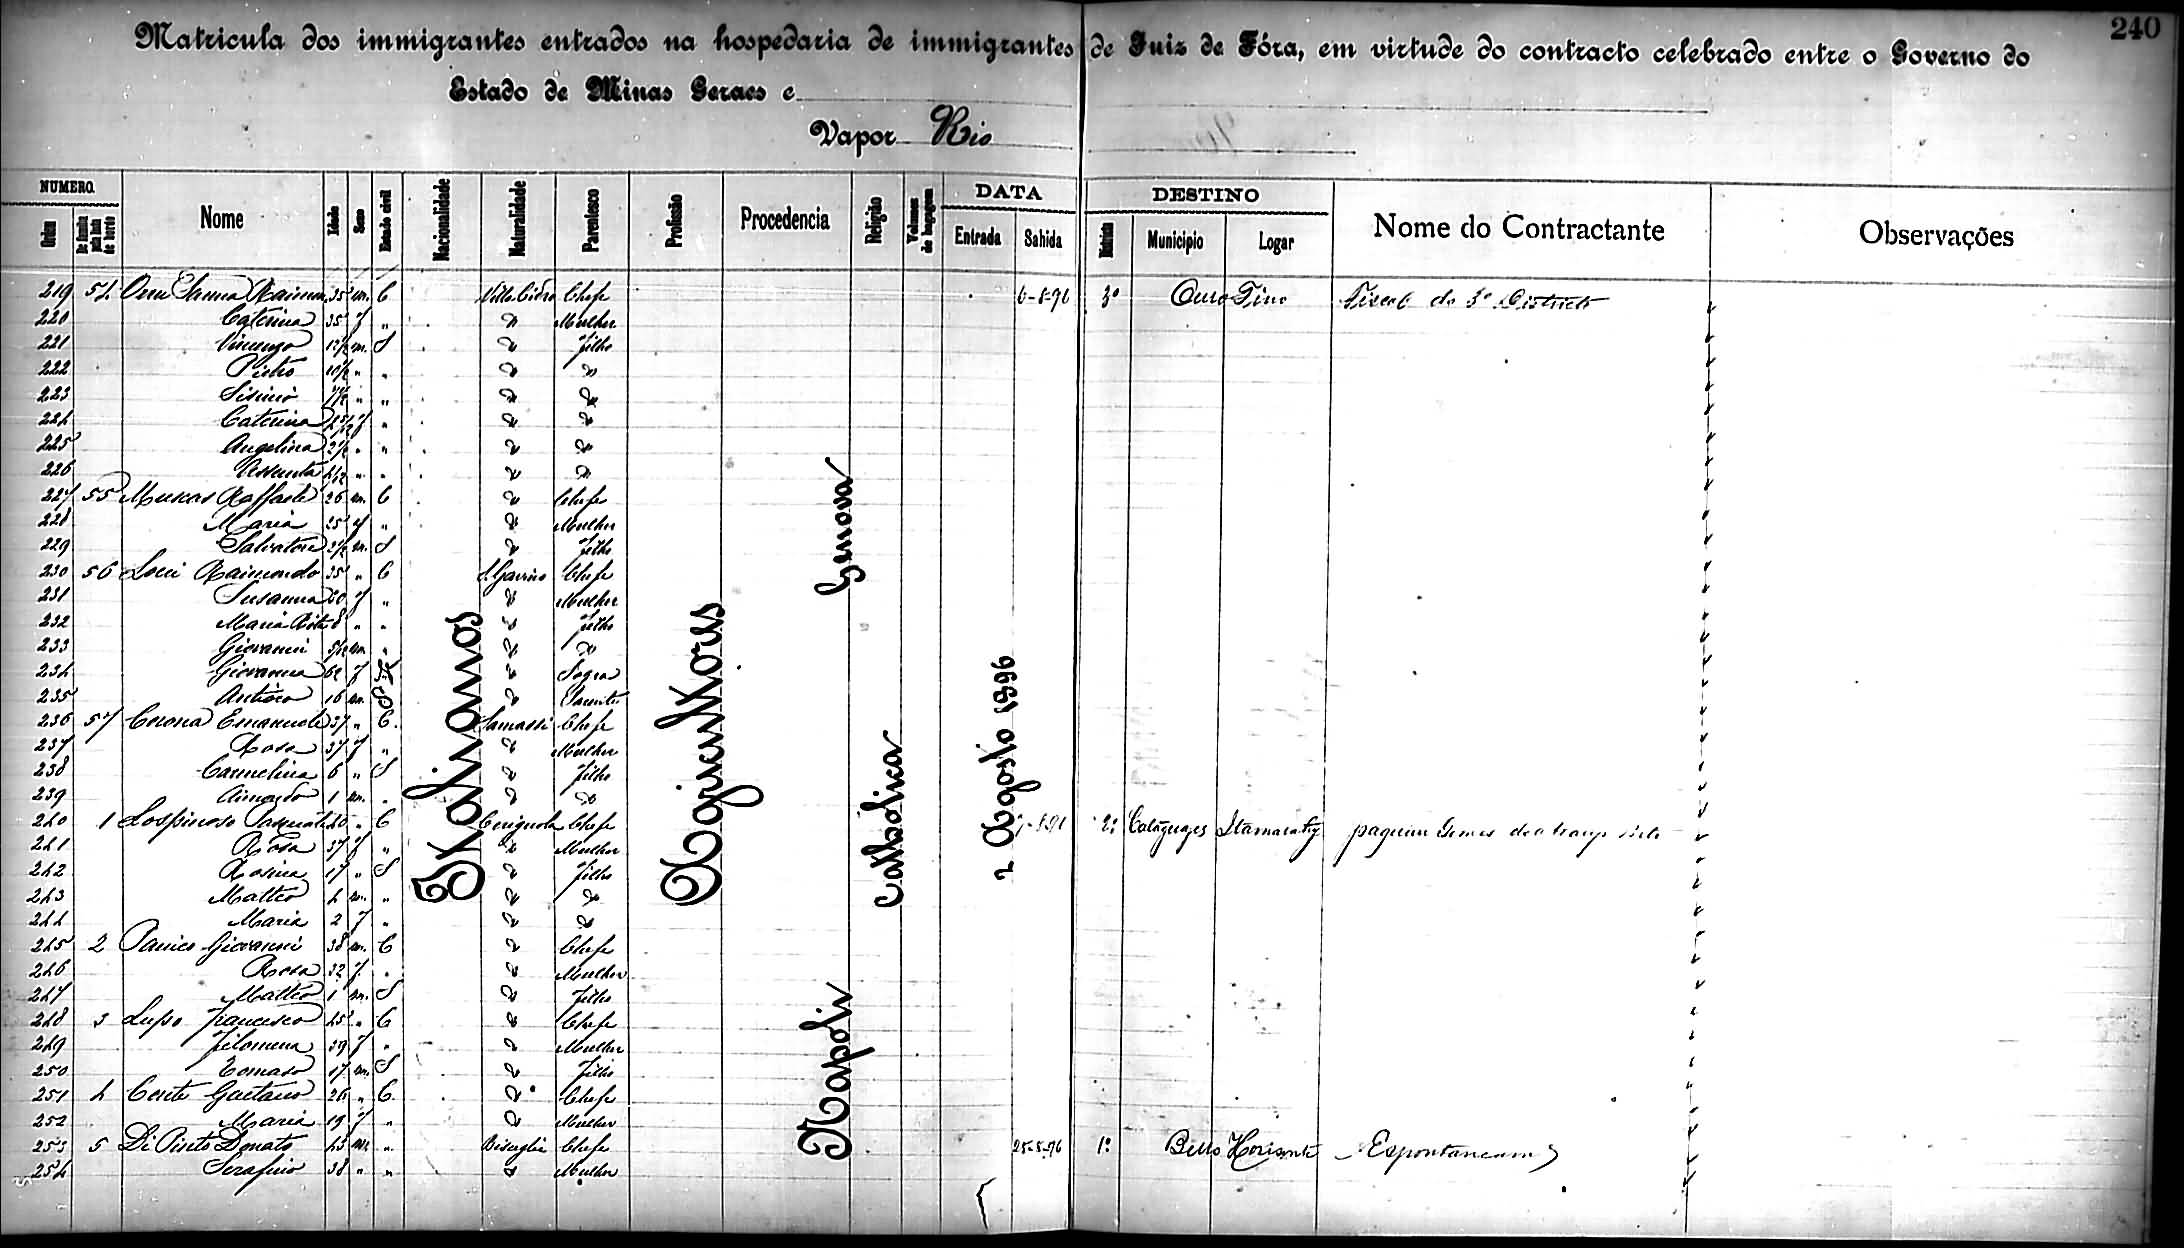 240
Matricula dos immigrantes entrados na hospedaria de immigrantes de Juiz de Fóra, em virtude do contracto celebrado entre o Governo do
Estado de Minas Geraes e
Vapor Rio
NUMERO. Nome Idade Sexo Estado civil Nacionalidade Naturalidade Parentesco Profissão Procedencia Religião Volumes de bagagem DATA DESTINO Nome do Contractante Observações
Ordem Entrada Sahida Districto Municipio Logar
219 54 Orru Sanna 35 m. C Villa Cidro Chefe 6-8-96 3º Ouro Fino Fiscal do 3º Districto
220 Caterina 35 f " " Mulher
221 Vincenzo m. S " Filho
222 Pietro " " " "
223 Sisinio " " " "
224 Caterina f " " "
225 Angelina " " " "
226 Assunta " " " "
227 55 Muscas Raffaele 26 m. C " Chefe
228 Maria 25 f " " Mulher
229 Salvatore m. S " Filho
230 56 Locci Raimondo 35 " C S Gavino Chefe
231 Susanna f " " Mulher
232 Maria Rita 8 " " " Filho
233 Giovanni m " " "
234 Giovanna 62 f " Sogra
235 Antioco 16 m. S " Parente
236 57 Corona Emanuele 37 " C. Samassi Chefe
237 Rosa 37 f " " Mulher
238 Carmelina 6 " S " Filho
239 1 m. " " "
240 1 Lospinoso Pasquale 40 " C Cerignola Chefe 2º Cataguazes Itamaraty
241 Rosa 37 f " " Mulher
242 Rosina 17 " S " Filho
243 Matteo 4 m. " " "
244 Maria 2 f " " "
245 2 Panico Giovanni 38 m. C " Chefe
246 Rosa 32 f. " " Mulher
247 Matteo 1 m. S " Filho
248 3 Lupo Francesco 45 " C " Chefe
249 Filomena 39 f " " Mulher
250 Tomaso 17 m. S " Filho
251 4 Conte Gaetano 26 " C. " Chefe
252 Maria 19 f " " Mulher
253 5 Di Pinto Donato 43 m. " Bisceglie Chefe 25-8-96 1º Bello Horizonte Espontaneam
254 Serafino 38 " " " Mulher
Italianos
Agricultores
Genova
Napolis
Catholica
2 Agosto 1896